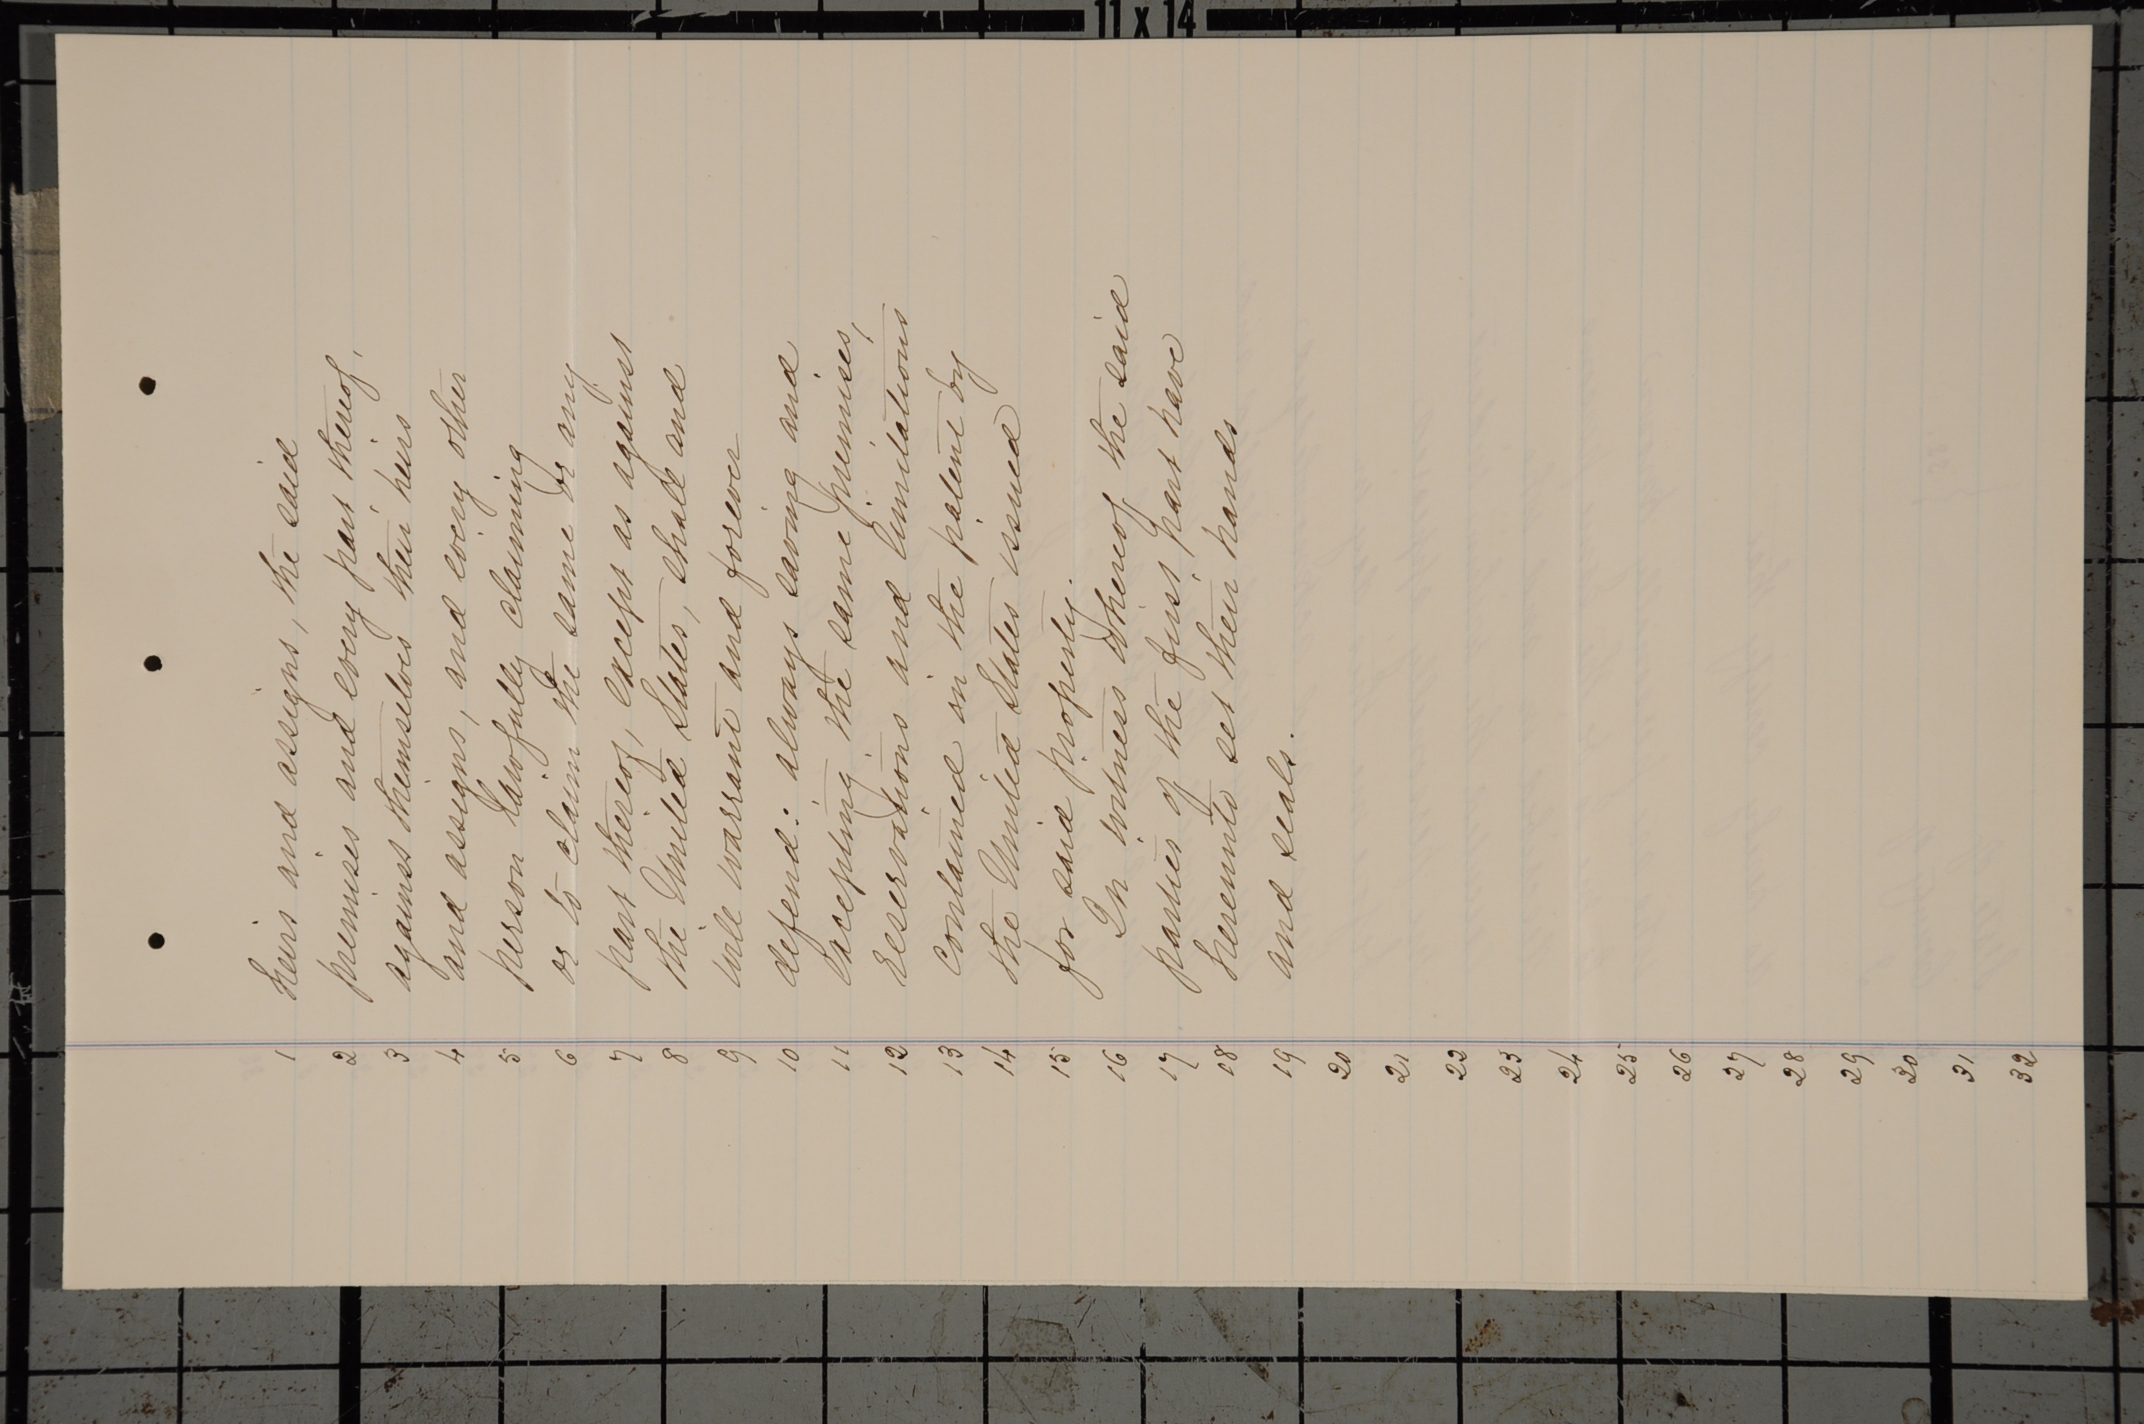 11 x 14
1 heirs and assigns, the said
2 premises and every part thereof,
3 against themselves their heirs
4 and assigns, and every other
5 person lawfully claiming
6 or to claim the same or any
7 part thereof, except as against
8 the United States, shall and
9 will warrant and forever
10 defend: always saving and
11 excepting the same premises,
12 reservations and limitations
13 contained in the patent by
14 the United States issued
15 for said property.
16 In witness Whereof the said
17 parties of the first part have
18 hereunto set their hands
19 and seals.
20
21
22
23
24
25
26
27
28
29
30
31
32